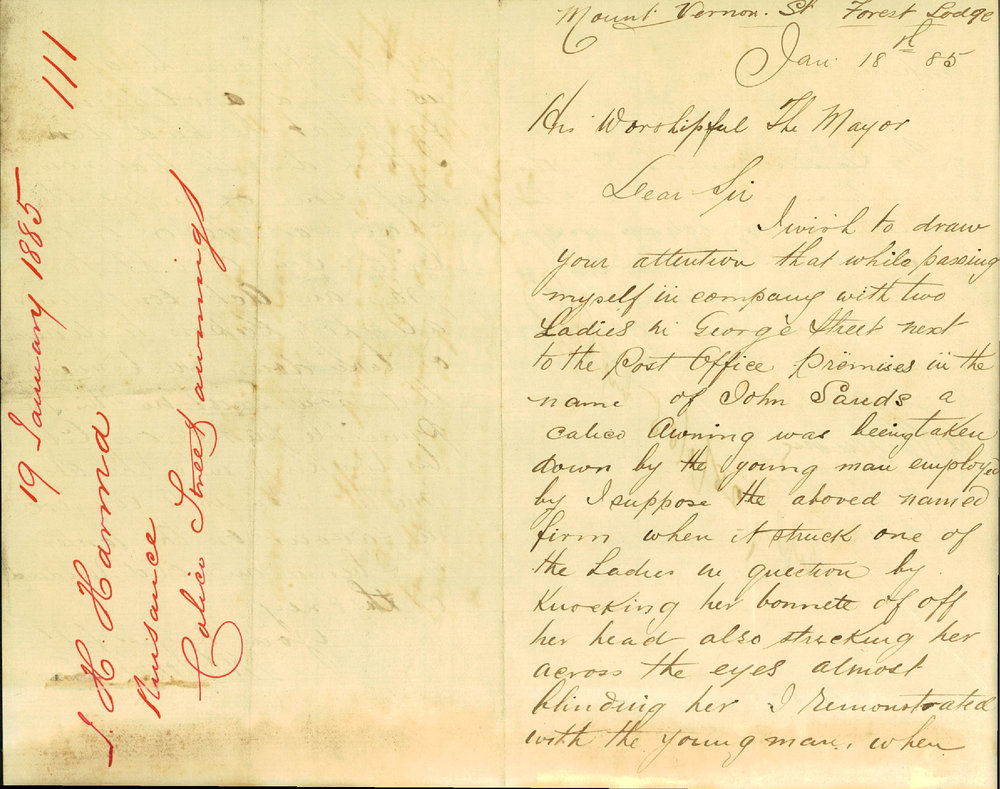 111
19 January 1885
J. H. Harmd
Nuisance
Calico Street awnings
Mount Vernon. St Forest Lodge
Jan 18th 85
His Worshipful The Mayor
Dear Sir
I wish to draw
your attention that while passing
myself in company with two
Ladies in George Street next
to the Post Office Premises in the
name of John Sands a
calico Awning was being taken
down by the young man employed
by I suppose the aboved named
firm when it struck one of
the Ladies in question by
Knocking her bonnete of off
her head also stricking her
across the eyes almost
blinding her I remonstrated
with the young man, when